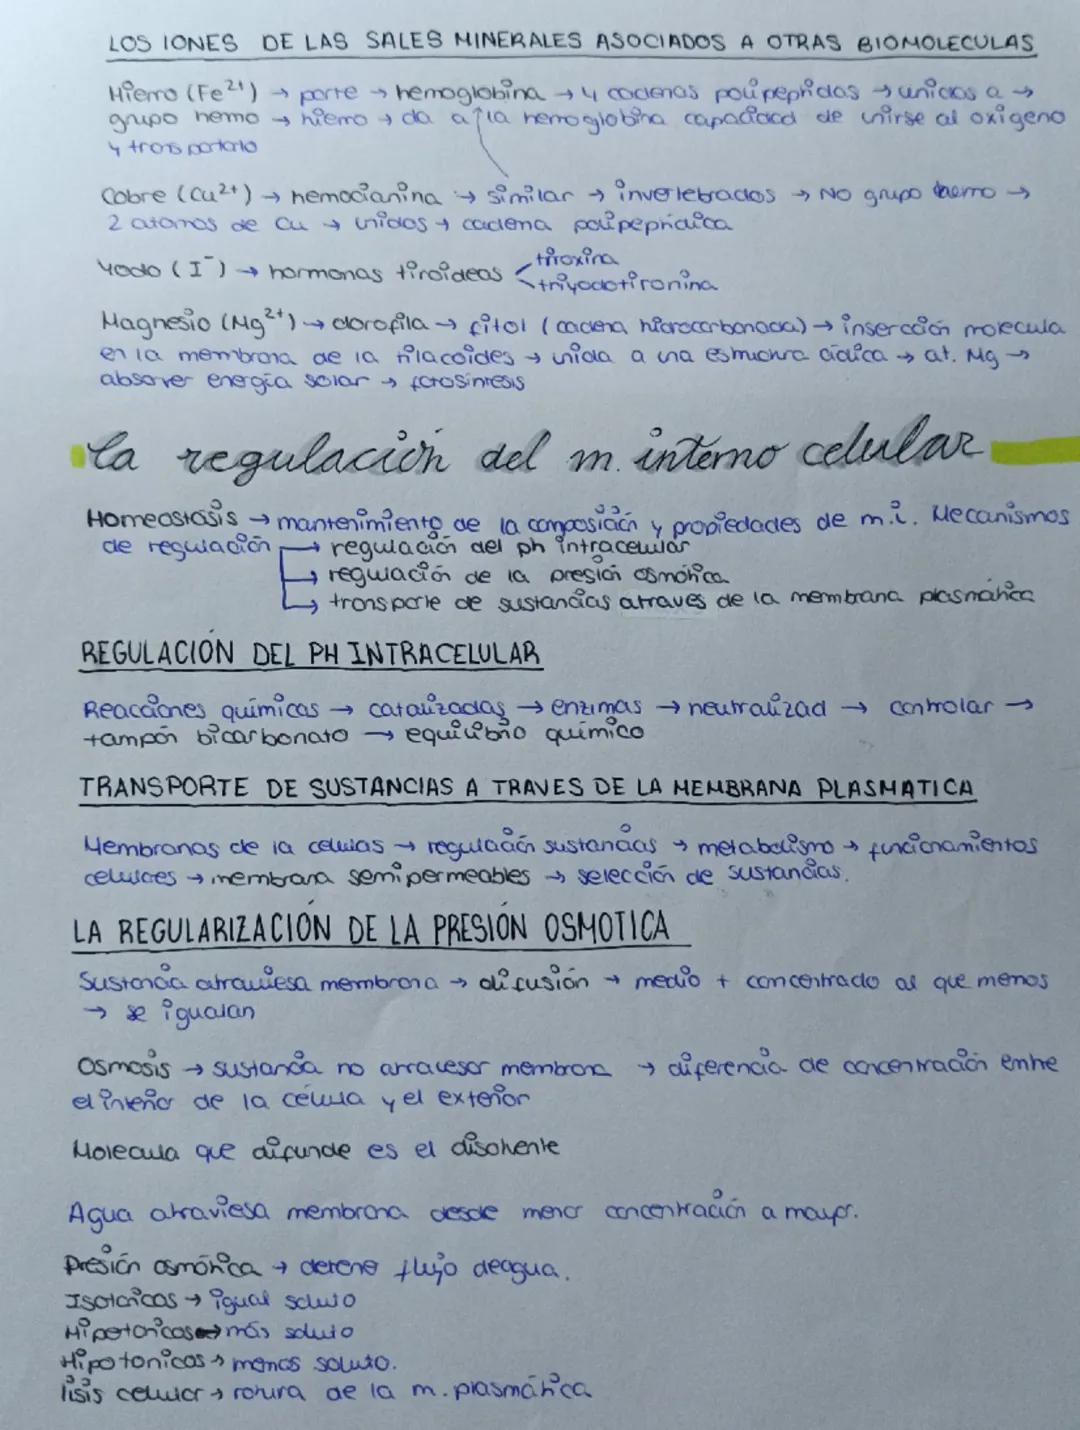 LOS IONES DE LAS SALES MINERALES ASOCIADOS A OTRAS BIOMOLECULAS
Hierro (Fe²⁺) → parte → hemoglobina → 4 cadenas polipeptidas → unidas a →
grupo hemo → hierro → da a la hemoglobina capacidad de unirse al oxígeno
y transportarlo
Cobre (Cu²⁺) → hemocianina → similar → invertebrados → No grupo hemo →
2 atomos de Cu → unidos → cadena polipeptidica
Yodo (I⁻) → hormonas tiroideas tiroxina
triyodotironina
Magnesio (Mg²⁺) → clorofila → fitol (cadena hidrocarbonada) → inserción molecula
en la membrana de la tilacoides → unida a una estructura cíclica → at. Mg →
absorver energía solar → fotosíntesis
La regulación del m. interno celular
Homeostasis → mantenimiento de la composición y propiedades de m.i. Mecanismos
de regulación → regulación del ph intracelular
→ regulación de la presión osmótica
→ transporte de sustancias atraves de la membrana plasmática
REGULACIÓN DEL PH INTRACELULAR
Reacciones químicas → catalizadas → enzimas → neutralizad → controlar →
tampón bicarbonato → equilibrio químico
TRANSPORTE DE SUSTANCIAS A TRAVES DE LA MEMBRANA PLASMATICA
Membranas de la celulas → regulación sustancias → metabolismo → funcionamientos
celulares → membrana semipermeables → selección de sustancias.
LA REGULARIZACIÓN DE LA PRESIÓN OSMOTICA
Sustancia atraviesa membrana → difusión → medio + concentrado al que menos
→ se igualan
Osmosis → sustancia no atravesar membrana → diferencia de concentración entre
el interior de la célula y el exterior
Molecula que difunde es el disolvente
Agua atraviesa membrana desde menor concentración a mayor.
Presión osmótica → detene flujo deagua.
Isotonicas → igual soluto
Hipetonicos → más soluto
Hipotonicos → menos soluto.
lisis celular → rotura de la m. plasmática